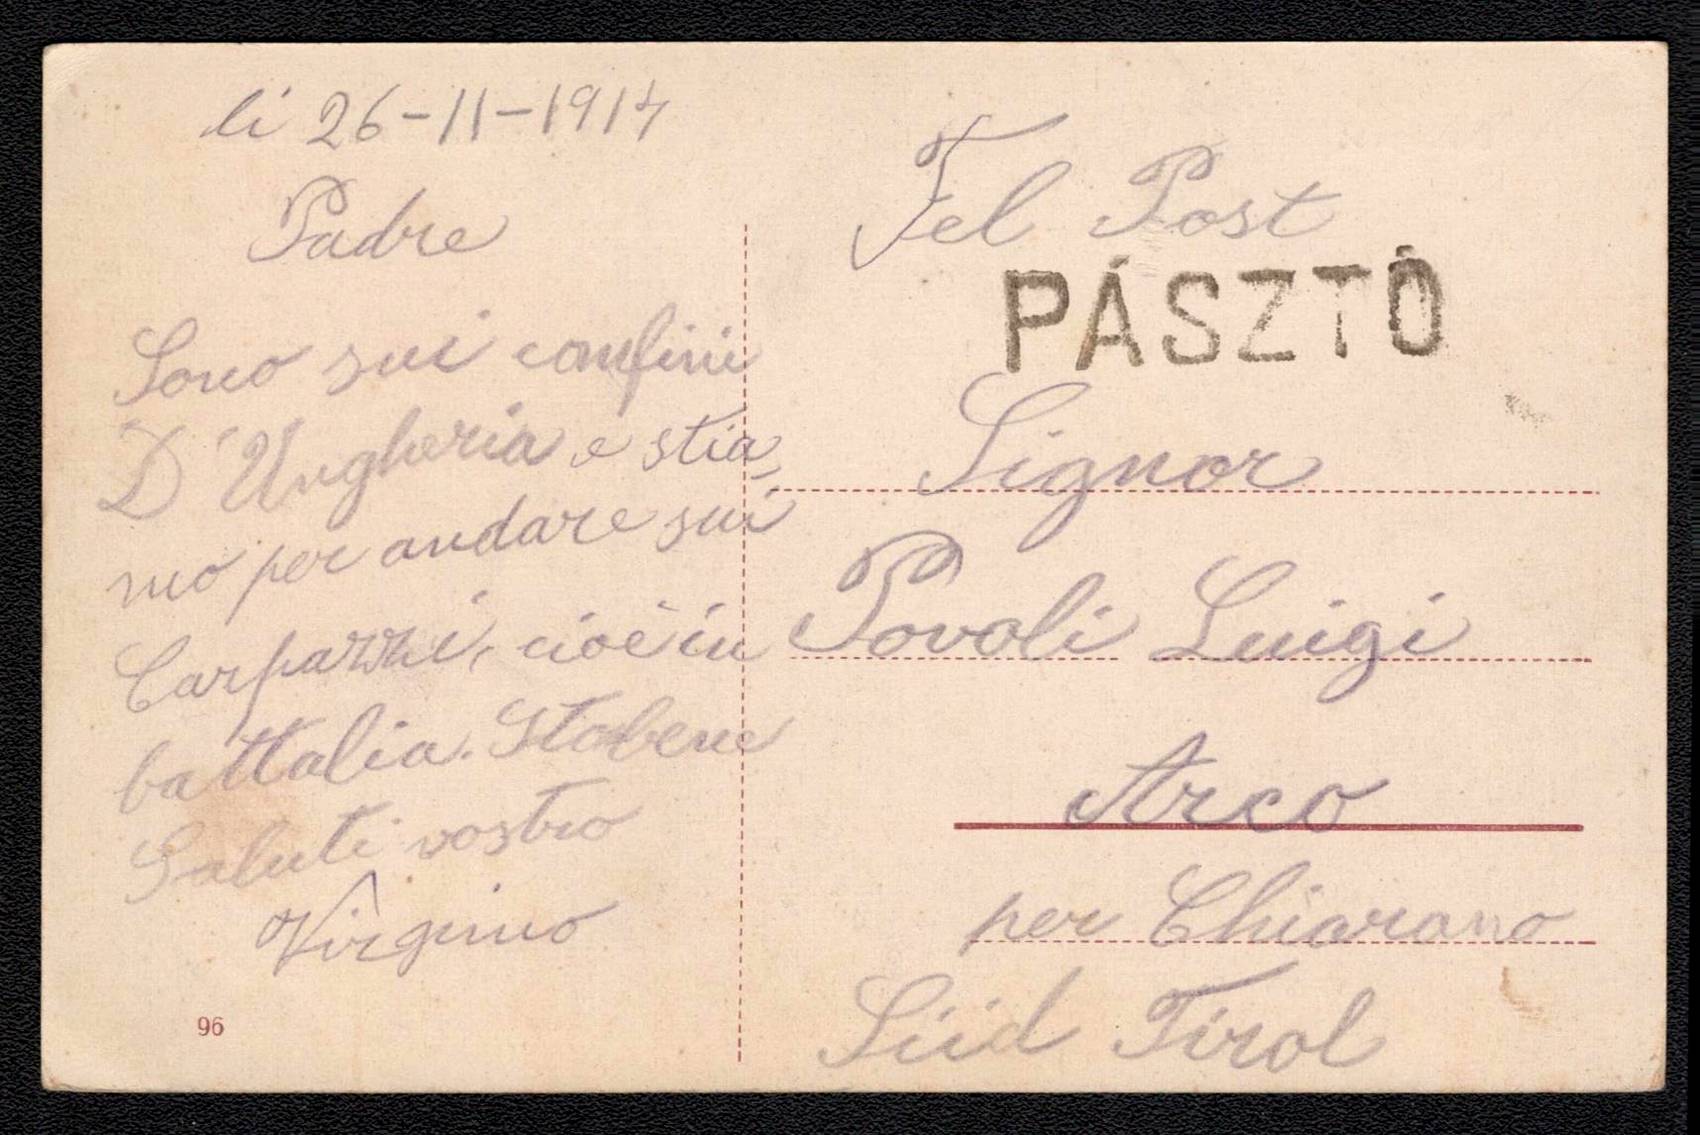 li 26-11-1914
Padre
Sono sui confini
D'Ungheria e stia-
mo per andare sui
Carpazzi, cioè in
battalia. Stobene
Saluti vostro
Virginio
96
Fel Post
PÁSZTÓ
Signor
Povoli Luigi
Arco
per Chiarano
Süd Tirol